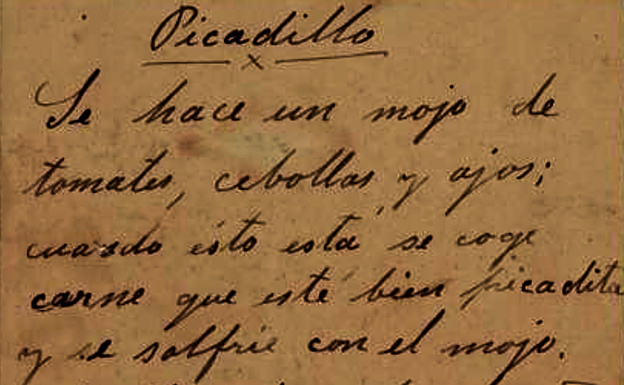 Picadillo
Se hace un mojo de
tomates, cebollas y ajos;
cuando esto está, se coge
carne que esté bien picadita
y se solfríe con el mojo.